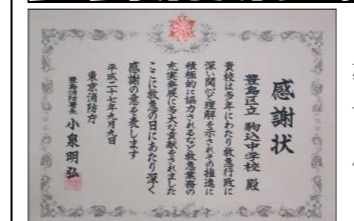 感謝状
豊島区立 駒込中学校 殿
貴校は多年にわたり救急行政に
深い関心と理解を示されその推進に
積極的に協力されるなど救急業務の
充実発展に多大な貢献をされました
ここに救急の日にあたり深く
感謝の意を表します
平成二十七年九月九日
東京消防庁
豊島消防署長 小泉明弘